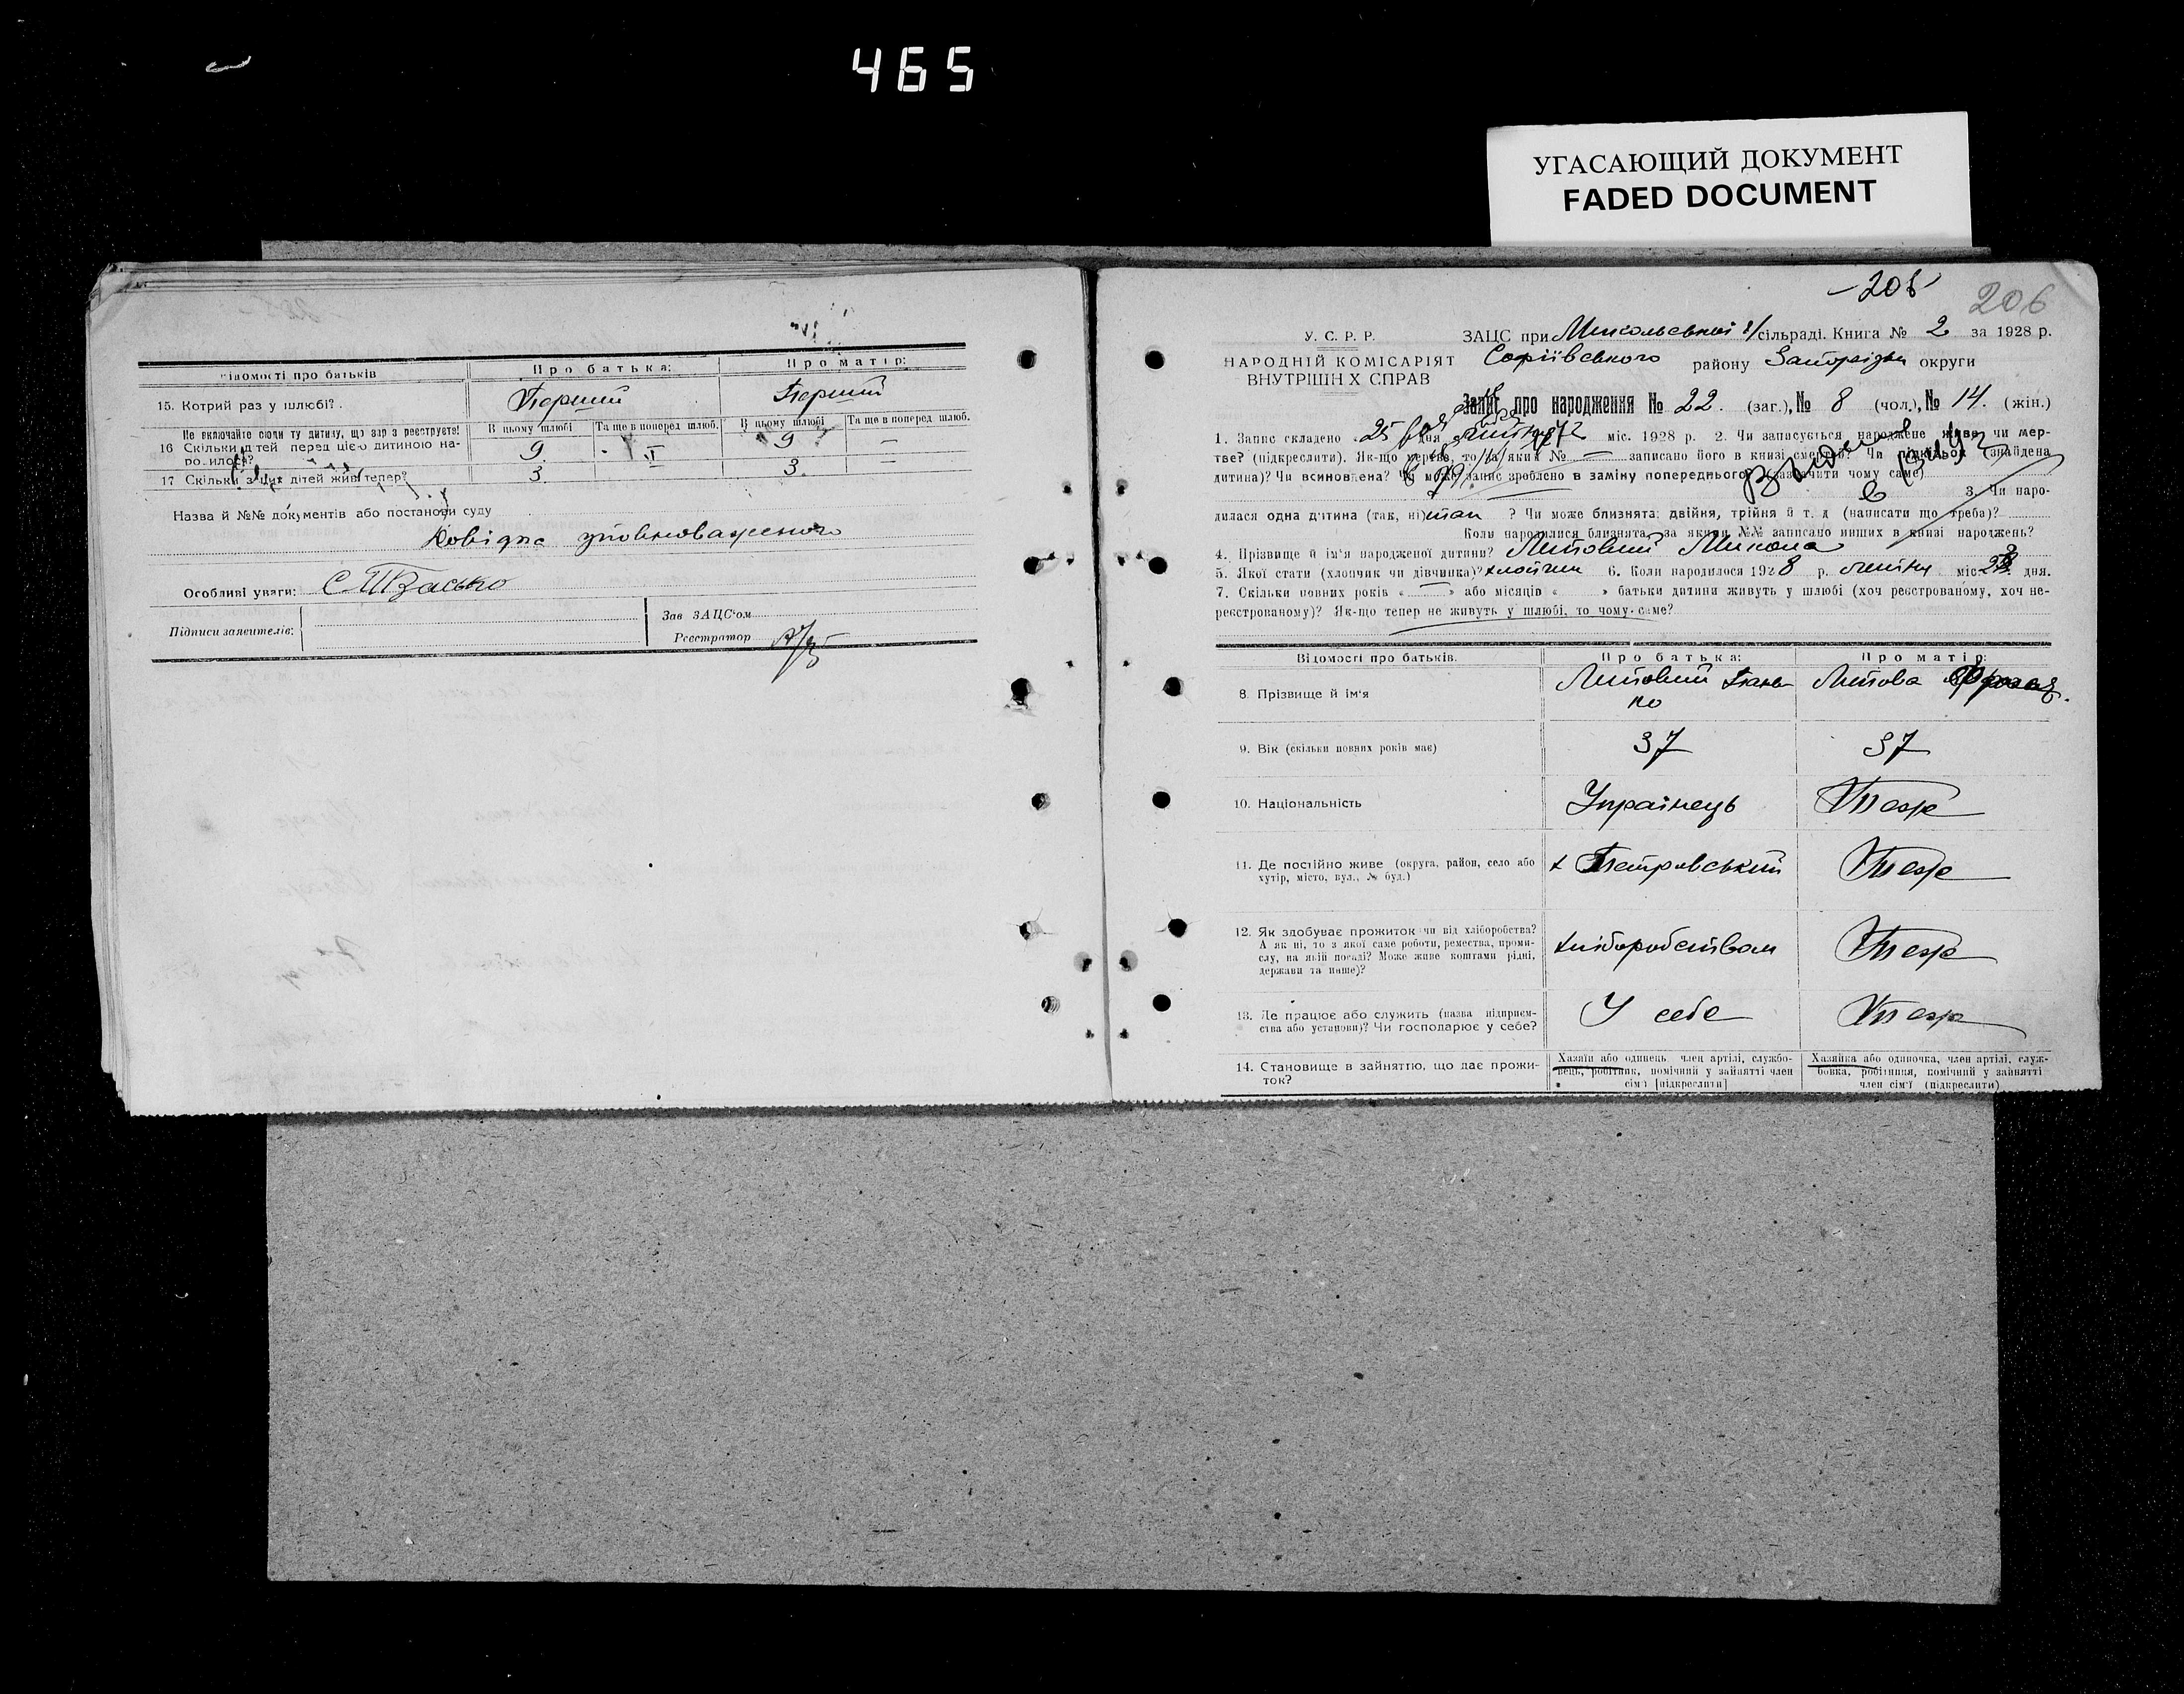 465
УГАСАЮЩИЙ ДОКУМЕНТ
FADED DOCUMENT
Відомості про батьків
Про батька:
Про матір:
15. Котрий раз у шлюбі?
Перший
Перший
Не включайте сюди ту дитину, що зараз реєструєте!
16 Скільки дітей перед цією дитиною народилося?
В цьому шлюбі
Та ще в поперед. шлюб.
В цьому шлюбі
Та ще в поперед. шлюб.
9
9
—
17 Скільки з цих дітей живі тепер?
3
3
—
Назва й №№ документів або постанови суду
Довідка уповноваженого
Особливі уваги:
Підписи заявителів:
Зав ЗАЦС'ом
Реєстратор
206
У. С. Р. Р.
НАРОДНІЙ КОМІСАРІЯТ
ВНУТРІШНІХ СПРАВ
ЗАЦС при Микольській сільраді. Книга № 2 за 1928 р.
Софіївського району Запорізьк округи
Запис про народження № 22. (заг.), № 8 (чол.), № 14. (жін.)
1. Запис складено 25 дня міс. 1928 р. 2. Чи записується народжене живе чи мер-
тве? (підкреслити). Як-що мертве, то за який № — записано його в книзі смертей? Чи підкидьок (знайдена
дитина)? Чи всиновлена? Чи може запис зроблено в заміну попереднього (зазначити чому саме)
3. Чи наро-
дилася одна дитина (так, ні) так ? Чи може близнята: двійня, трійня й т. д. (написати що треба)?
Коли народилися близнята, за якими №№ записано инших в книзі народжень?
4. Прізвище й ім'я народженої дитини? Литовий Микола
5. Якої стати (хлопчик чи дівчинка)? хлопчик 6. Коли народилося 1928 р. міс. дня.
7. Скільки повних років « — » або місяців « » батьки дитини живуть у шлюбі (хоч реєстрованому, хоч не-
реєстрованому)? Як-що тепер не живуть у шлюбі, то чому саме?
Відомості про батьків.
Про батька:
Про матір:
8. Прізвище й ім'я
Литовий
Литова
9. Вік (скільки повних років має)
37
37
10. Національність
Українець
Теж
11. Де постійно живе (округа, район, село або
хутір, місто, вул., № буд.)
х Петровський
Теж
12. Як здобуває прожиток чи від хліборобства?
А як ні, то з якої саме роботи, ремества, проми-
слу, на якій посаді? Може живе коштами рідні,
держави та инше)?
хліборобством
Теж
13. Де працює або служить (назва підприєм-
ства або установи)? Чи господарює у себе?
У себе
Теж
14. Становище в зайняттю, що дає прожи-
ток?
Хазяїн або одинець, член артілі, службо-
вець, робітник, помічний у зайнятті член
сім'ї [підкреслити]
Хазяйка або одиночка, член артілі, служ-
бовка, робітниця, помічний у зайнятті
член сім'ї (підкреслити)